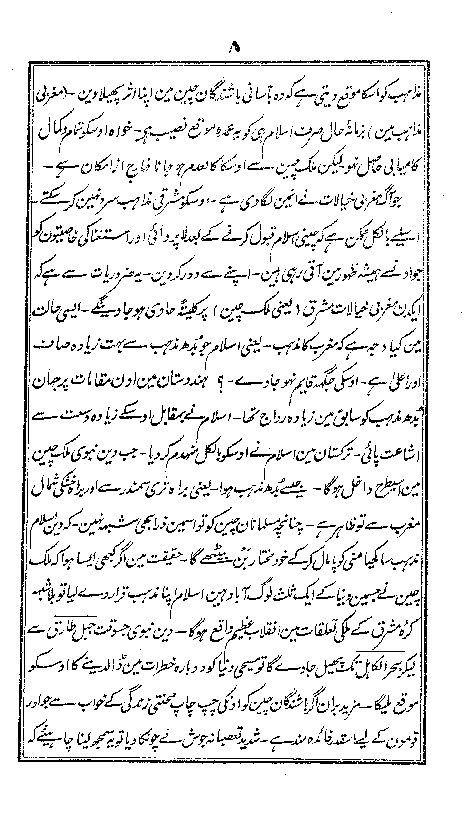 ۸
مذاہب کو اسکا موقع دیتی ہے کہ وہ بآسانی باشندگان چین مین اپنا اثر پھیلاوین ۔ (مغربی
مذاہب مین) بزمانۂ حال صرف اسلام ہی کو یہ عمدہ موقع نصیب ہو ۔ خواہ اوسکو تمام و کمال
کامیابی حاصل نہو لیکن ملک چین سے اوسکا کالعدم ہو جانا خارج از امکان ہے ۔
جو آگ مغربی خیالات نے انہین لگا دی ہے ۔ اوسکو مشرقی مذاہب سرد نہین کر سکتے
اسلیے بالکل ممکن ہے کہ چینی اسلام قبول کرنے کے بعد لاپروائی اور استغنا کی خاصیتون کو
جو اونسے ہمیشہ ظہور مین آتی رہی ہین ۔ اپنے سے دور کر دین ۔ یہ ضروریات سے ہے کہ
ایکدن مغربی خیالات مشرق (یعنی ملک چین) پر کلیتہً حاوی ہو جاوینگے ۔ ایسی حالت
مین کیا وجہ ہے کہ مغرب کا مذہب ۔ یعنی اسلام جو بدھ مذہب سے بہت زیادہ صاف
اور اعلیٰ ہے ۔ اوسکی جگہہ قایم نہو جاوے ۔ ؟ ہندوستان مین اون مقامات پر جہان
بدھ مذہب کو سابق مین زیادہ رواج تھا ۔ اسلام نے بمقابل اوسکے زیادہ وسعت سے
اشاعت پائی ۔ ترکستان مین اسلام نے اوسکو بالکل منہدم کر دیا ۔ جب دین نبوی ملک چین
مین اسیطرح داخل ہوگا ۔ جیسے بدھ مذہب ہوا یعنی براہ تری سمندر سے اور براہ خشکی شمال
مغرب سے تو ظاہر ہے ۔ چنانچہ مسلمانان چین کو تو اسمین ذرا بھی شبہہ نہین ۔ کہ دین اسلام
مذہب ساکھیا منی کو پامال کر کے خود مختار بن بیٹھے گا ۔ حقیقت مین اگر کبھی ایسا ہوا کہ ملک
چین نے جسمین دنیا کے ایک ثلث لوگ آباد ہین اسلام اپنا مذہب قرار دے لیا تو بلاشبہ
کرۂ مشرق کے ملکی تعلقات مین انقلاب عظیم واقع ہوگا ۔ دین نبوی جسوقت جبل طارق سے
لیکر بحر الکاہل تک پھیل جاوے گا تو مسیحی دنیا کو دوبارہ خطرات مین ڈالدینے کا اوسکو
موقع ملیگا ۔ مزید بران اگر باشندگان چین کو اونکی چپ چاپ محنتی زندگی کے خواب سے جو اور
قومون کے لیے اسقدر فائدہ مند ہے ۔ شدید تعصبانہ جوش نے چونکا دیا تو یہ سمجھ لینا چاہیئے کہ